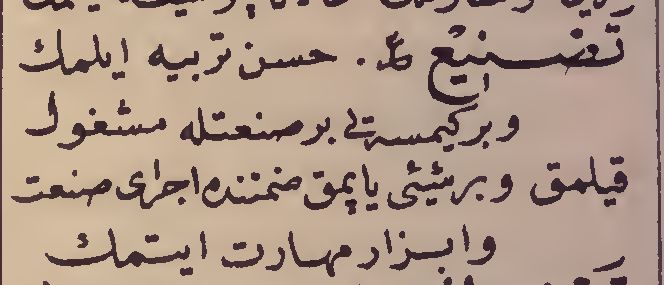 تصنيع ط. حسن تربيه ايلمك
وبر كيمسه يى بر صنعتله مشغول
قيلمق وبر شيئى ياپمق ضمننده اجراى صنعت
وابراز مهارت ايتمك